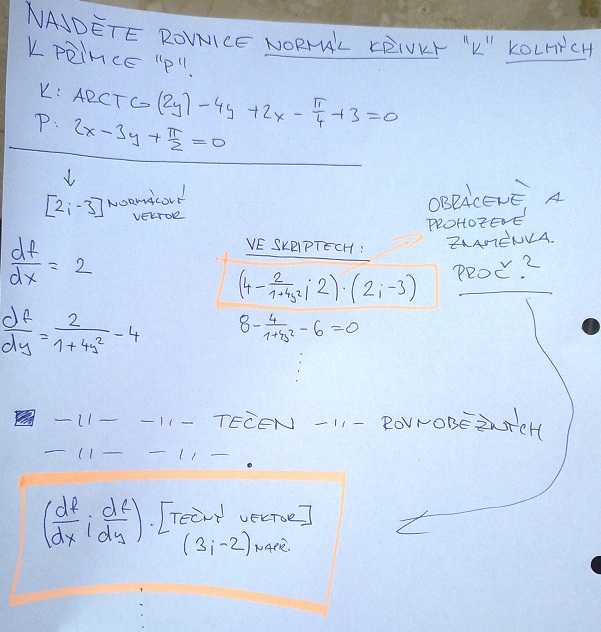 NAJDĚTE ROVNICE NORMÁL KŘIVKY "K" KOLMÝCH
K PŘÍMCE "P".
K: ARCTG (2y) - 4y + 2x - π/4 + 3 = 0
P: 2x - 3y + π/2 = 0
↓
[2; -3] NORMÁLOVÝ
VEKTOR
df/dx = 2
df/dy = 2/(1+4y²) - 4
VE SKRIPTECH:
(4 - 2/(1+4y²); 2) · (2; -3)
8 - 4/(1+4y²) - 6 = 0
OBRÁCENĚ A
PROHOZENÉ
ZNAMÉNKA.
PROČ?
-11- -11- TEČEN -11- ROVNOBĚŽNÝCH
-11- -11- .
(df/dx; df/dy) · [TEČNÝ VEKTOR]
(3; -2) NAPŘ.